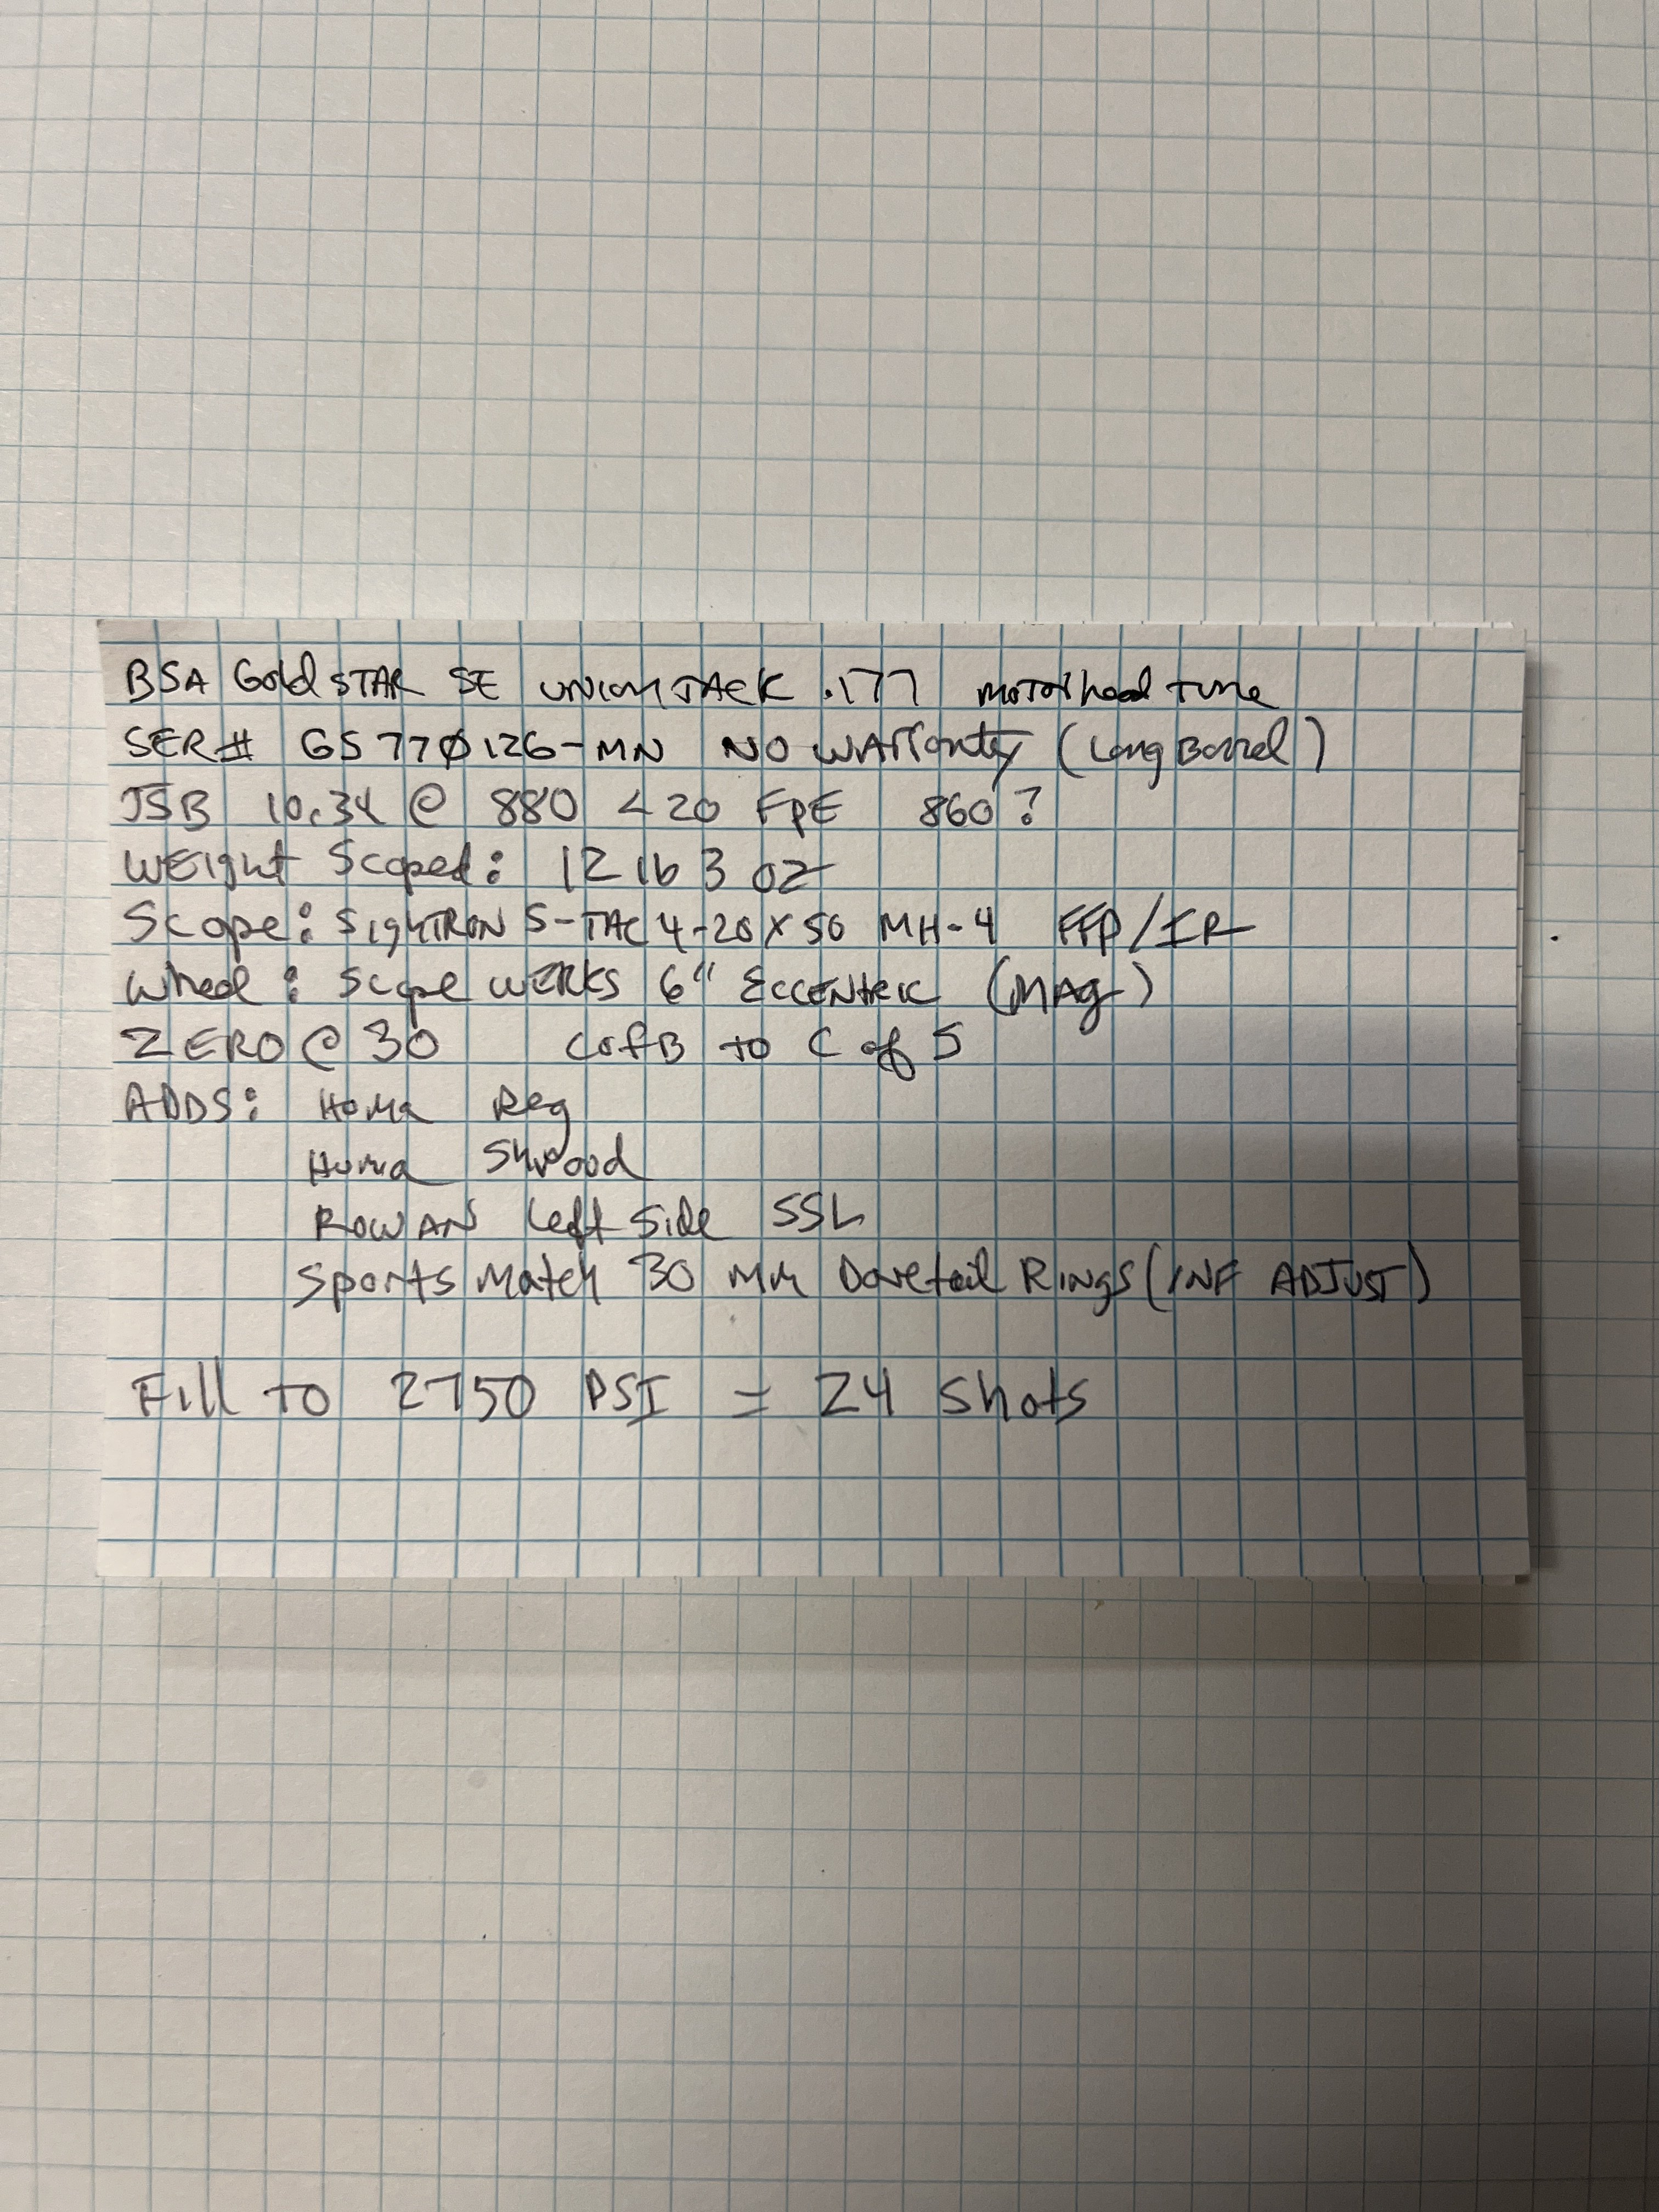 BSA Gold STAR SE UNION JACK .177 motorhead Tune
SER# GS77Ø126-MN NO WARranty (Long Barrel)
JSB 10.34 @ 880 < 20 FpE 860?
WEIght Scoped: 12 lb 3 oz
Scope: SIghTRON S-TAC 4-20x50 MH-4 FFP/IR
Wheel: Scope WERKS 6" ECCENtric (MAg)
ZERO @ 30 C of B to C of S
ADDS: HuMa Reg
Huma Shroud
ROWAN Left Side SSL
Sports Match 30 MM Dovetail RINgS (INF ADJUST)
Fill TO 2750 PSI = 24 Shots